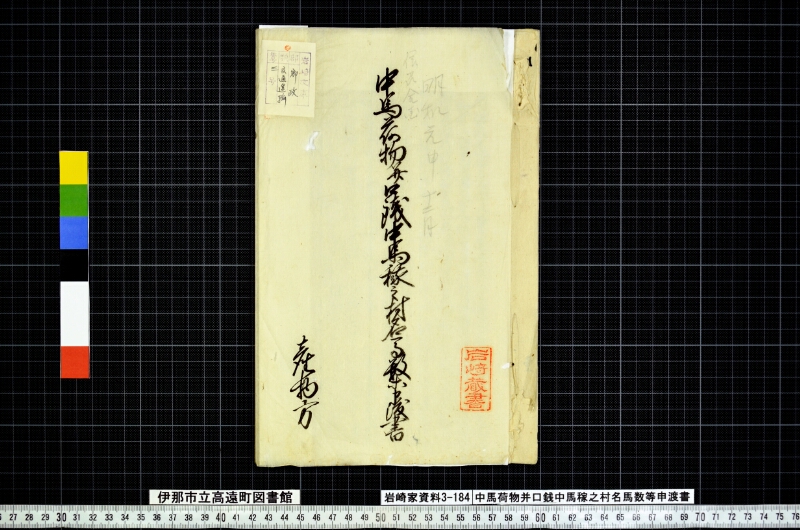 中馬荷物并口銭中馬稼之村名馬数等申渡書
産物方
明和元申十二月
岩崎蔵書
御政
交通運輸
伊那市立高遠町図書館
岩崎家資料3-184 中馬荷物并口銭中馬稼之村名馬数等申渡書
27 28 29 30 31 32 33 34 35 36 37 38 39 40 41 42 43 44 45 46 47 48 49 50 51 52 53 54 55 56 57 58 59 60 61 62 63 64 65 66 67 68 69 70 71 72 73 74 75 76